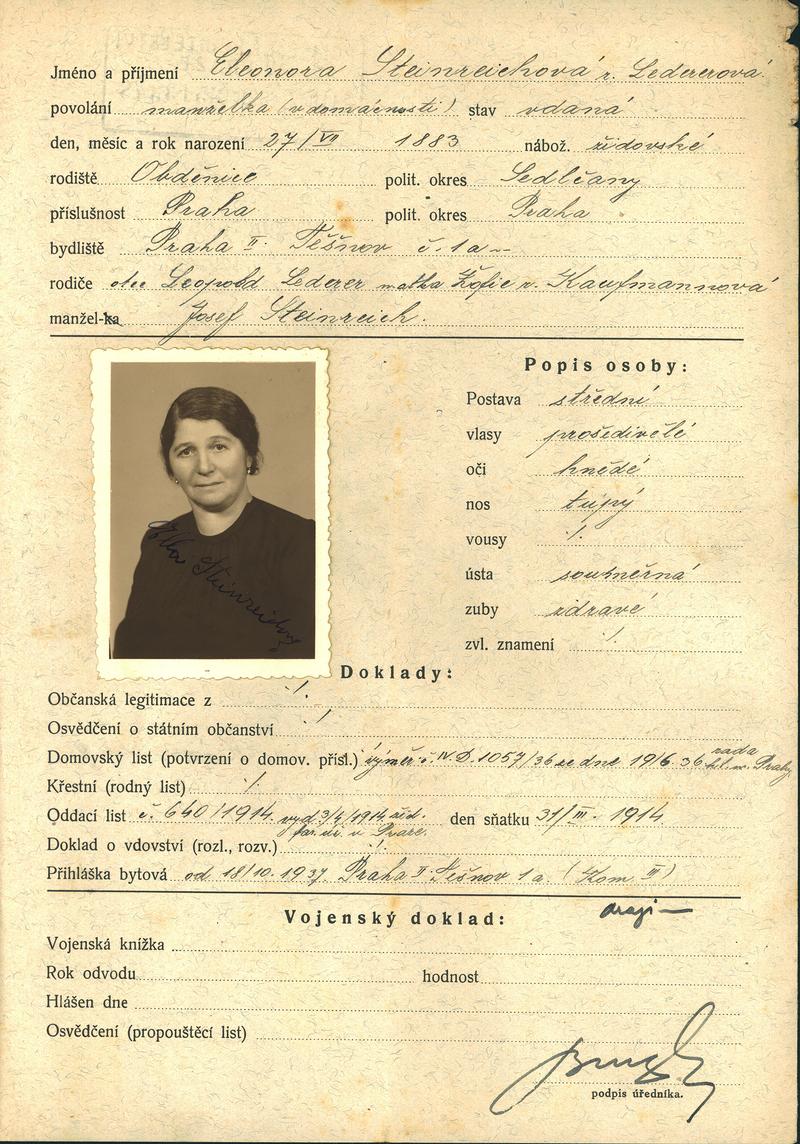 Jméno a příjmení Eleonora Steinreichová r. Ledererová
povolání manželka (v domácnosti) stav vdaná
den, měsíc a rok narození 27/VII 1883 nábož. židovské
rodiště Obděnice polit. okres Sedlčany
příslušnost Praha polit. okres Praha
bydliště Praha II. Těšnov č. 1a
rodiče otec Leopold Lederer matka Žofie r. Kaufmannová
manžel-ka Josef Steinreich.
Popis osoby:
Postava střední
vlasy prošedivělé
oči hnědé
nos tupý
vousy ⁒
ústa souměrná
zuby zdravé
zvl. znamení ⁒
Steinreichová
Doklady:
Občanská legitimace z ⁒
Osvědčení o státním občanství ⁒
Domovský list (potvrzení o domov. přísl.) výměr č. IV. D. 1057/36 ze dne 19/6 36 rada hl. m. Prahy
Křestní (rodný list) ⁒
Oddací list č. 640/1914 vyd 3/4/1914 žid. den sňatku 31/III. 1914
far. úř. v Praze.
Doklad o vdovství (rozl., rozv.) ⁒
Přihláška bytová od 18/10. 1937. Praha II. Těšnov 1a. (Kom. III)
Vojenský doklad:
Vojenská knížka
Rok odvodu hodnost
Hlášen dne
Osvědčení (propouštěcí list)
podpis úředníka.